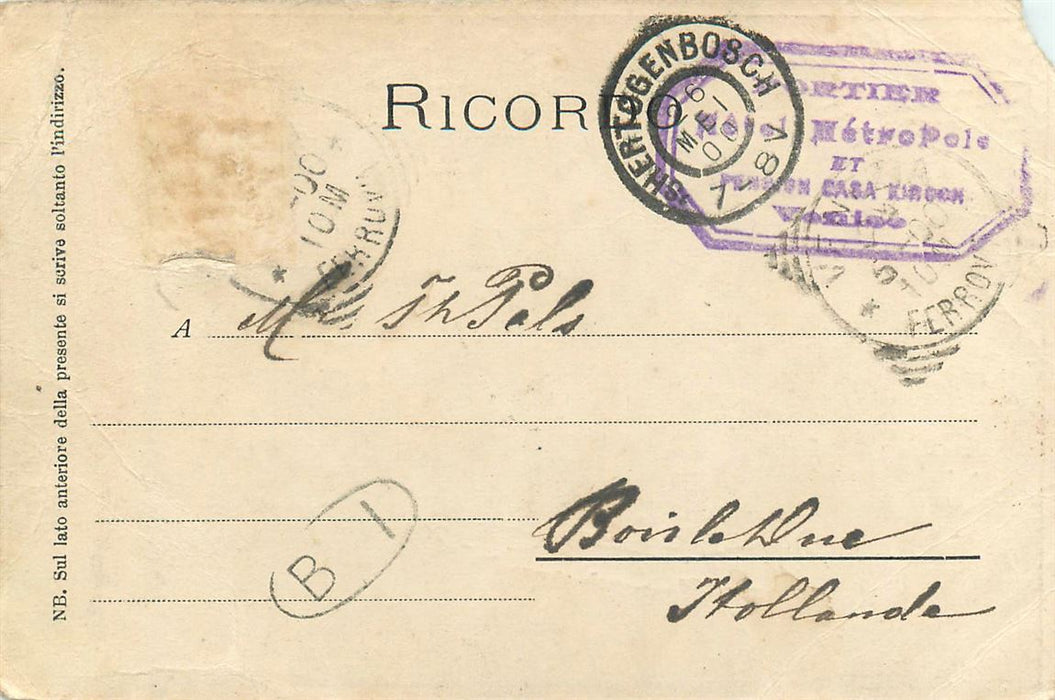 RICORDO
'SHERTOGENBOSCH
6 MEI 00
PORTIER
Hôtel Métropole
ET
PENSION CASA KIRSCH
Venise
00
10 M
FERROVIA
10 M
FERROVIA
A Mr. Th Pels
Bois le Duc
Hollanda
B 1
NB. Sul lato anteriore della presente si scrive soltanto l'indirizzo.